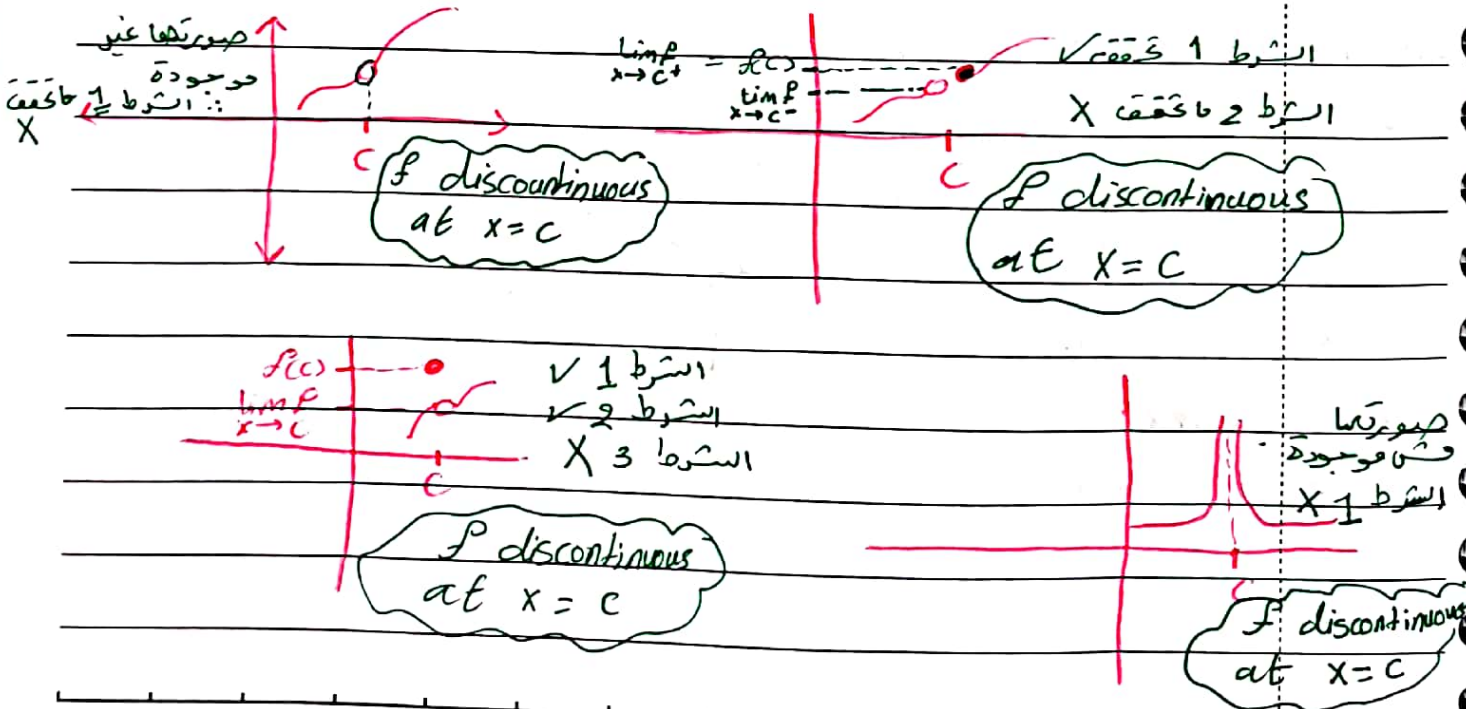 صورتها غير
موجودة
∴ الشرط 1 ماتحقق
X
C
f discountinuous
at x = c
lim f = f(c)
x→c⁺
lim f
x→c⁻
الشرط 1 تحقق ✓
الشرط 2 ماتحقق X
C
f discontinuous
at x = c
f(c)
lim f
x→c
الشرط 1 ✓
الشرط 2 ✓
الشرط 3 X
C
f discontinuous
at x = c
صورتها
مش موجودة
الشرط 1 X
C
f discontinuous
at x = c